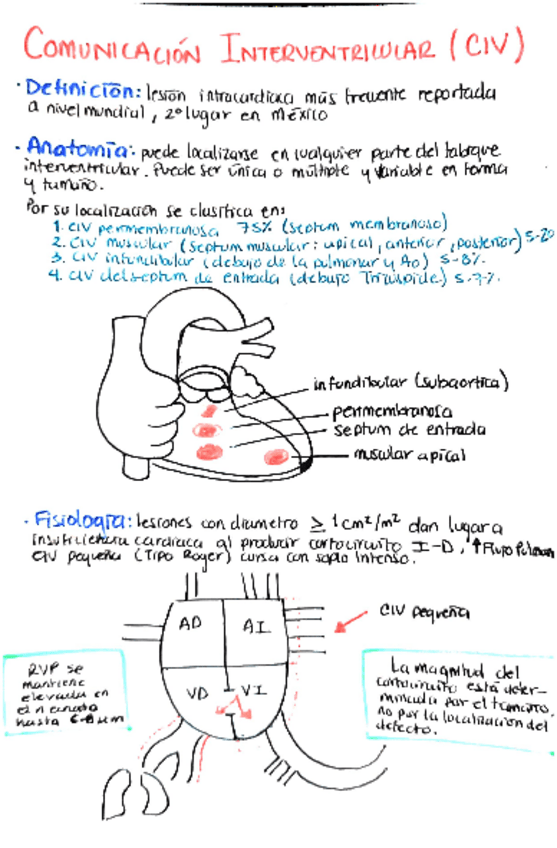 COMUNICACIÓN INTERVENTRICULAR (CIV)
· Definición: lesión intracardiaca más frecuente reportada
a nivel mundial, 2º lugar en México
· Anatomía: puede localizarse en cualquier parte del tabique
interventricular. Puede ser única o múltiple y variable en forma
y tamaño.
Por su localización se clasifica en:
1. CIV perimembranosa 75% (septum membranoso)
2. CIV muscular (septum muscular: apical, anterior, posterior) 5-20
3. CIV infundibular (debajo de la pulmonar y Ao) 5-8%
4. CIV del septum de entrada (debajo Tricúspide) 5-7%.
infundibular (subaortica)
perimembranosa
septum de entrada
muscular apical
· Fisiología: lesiones con diametro ≥ 1cm²/m² dan lugar a
insuficiencia cardiaca al producir cortocircuito I-D, ↑Flujo Pulmonar
CIV pequeña (Tipo Roger) cursa con soplo intenso.
CIV pequeña
AD AI
VD VI
RVP se
mantiene
elevada en
el
hasta 6-8
La magnitud del
cortocircuito está deter-
minada por el tamaño,
no por la localización del
defecto.